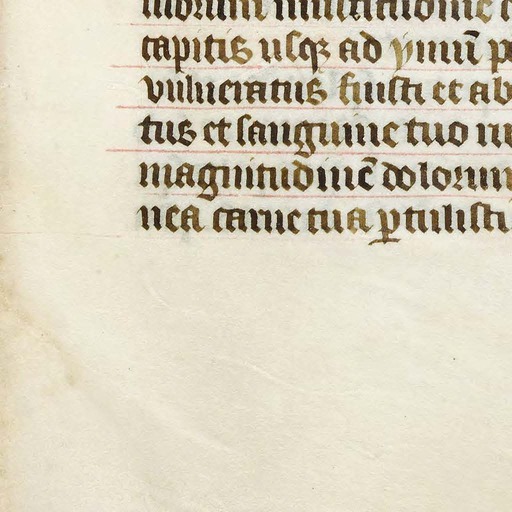 multitudine
capitis usqꝫ ad ymū
vulneratus fuisti et ab
tus et sanguine tuo
magnitudinē dolorum
nea carne tua ꝑtulisti